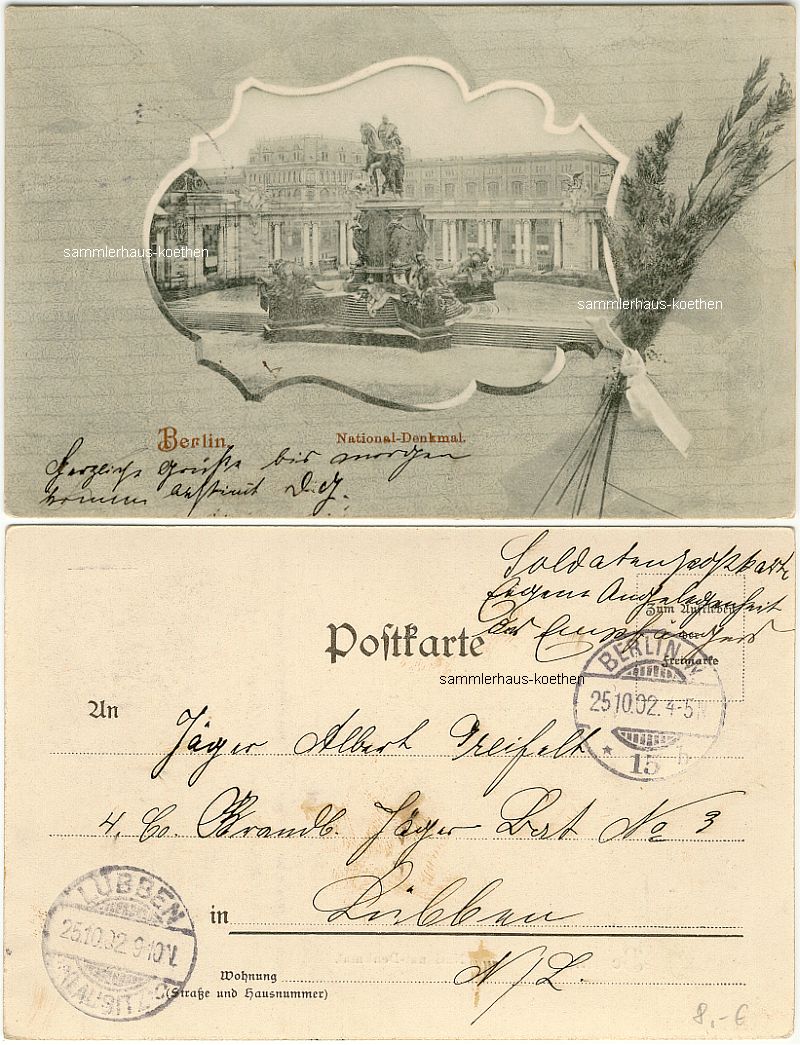 sammlerhaus-koethen
sammlerhaus-koethen
Berlin.
National-Denkmal.
Herzliche Grüße bis morgen
kommen
Soldatenpostkarte
Eigene Angelegenheit
des Empfängers
Zum Aufkleben
der
Freimarke
Postkarte
sammlerhaus-koethen
BERLIN W.
25.10.02. 4-5N
* 15 b
An
Jäger Albert Treifelt
4. C. Brandb. Jäger Bat No 3
LÜBBEN
25.10.02. 9-10N.
in Lübben
N/L.
Wohnung
(Straße und Hausnummer)
8,-€